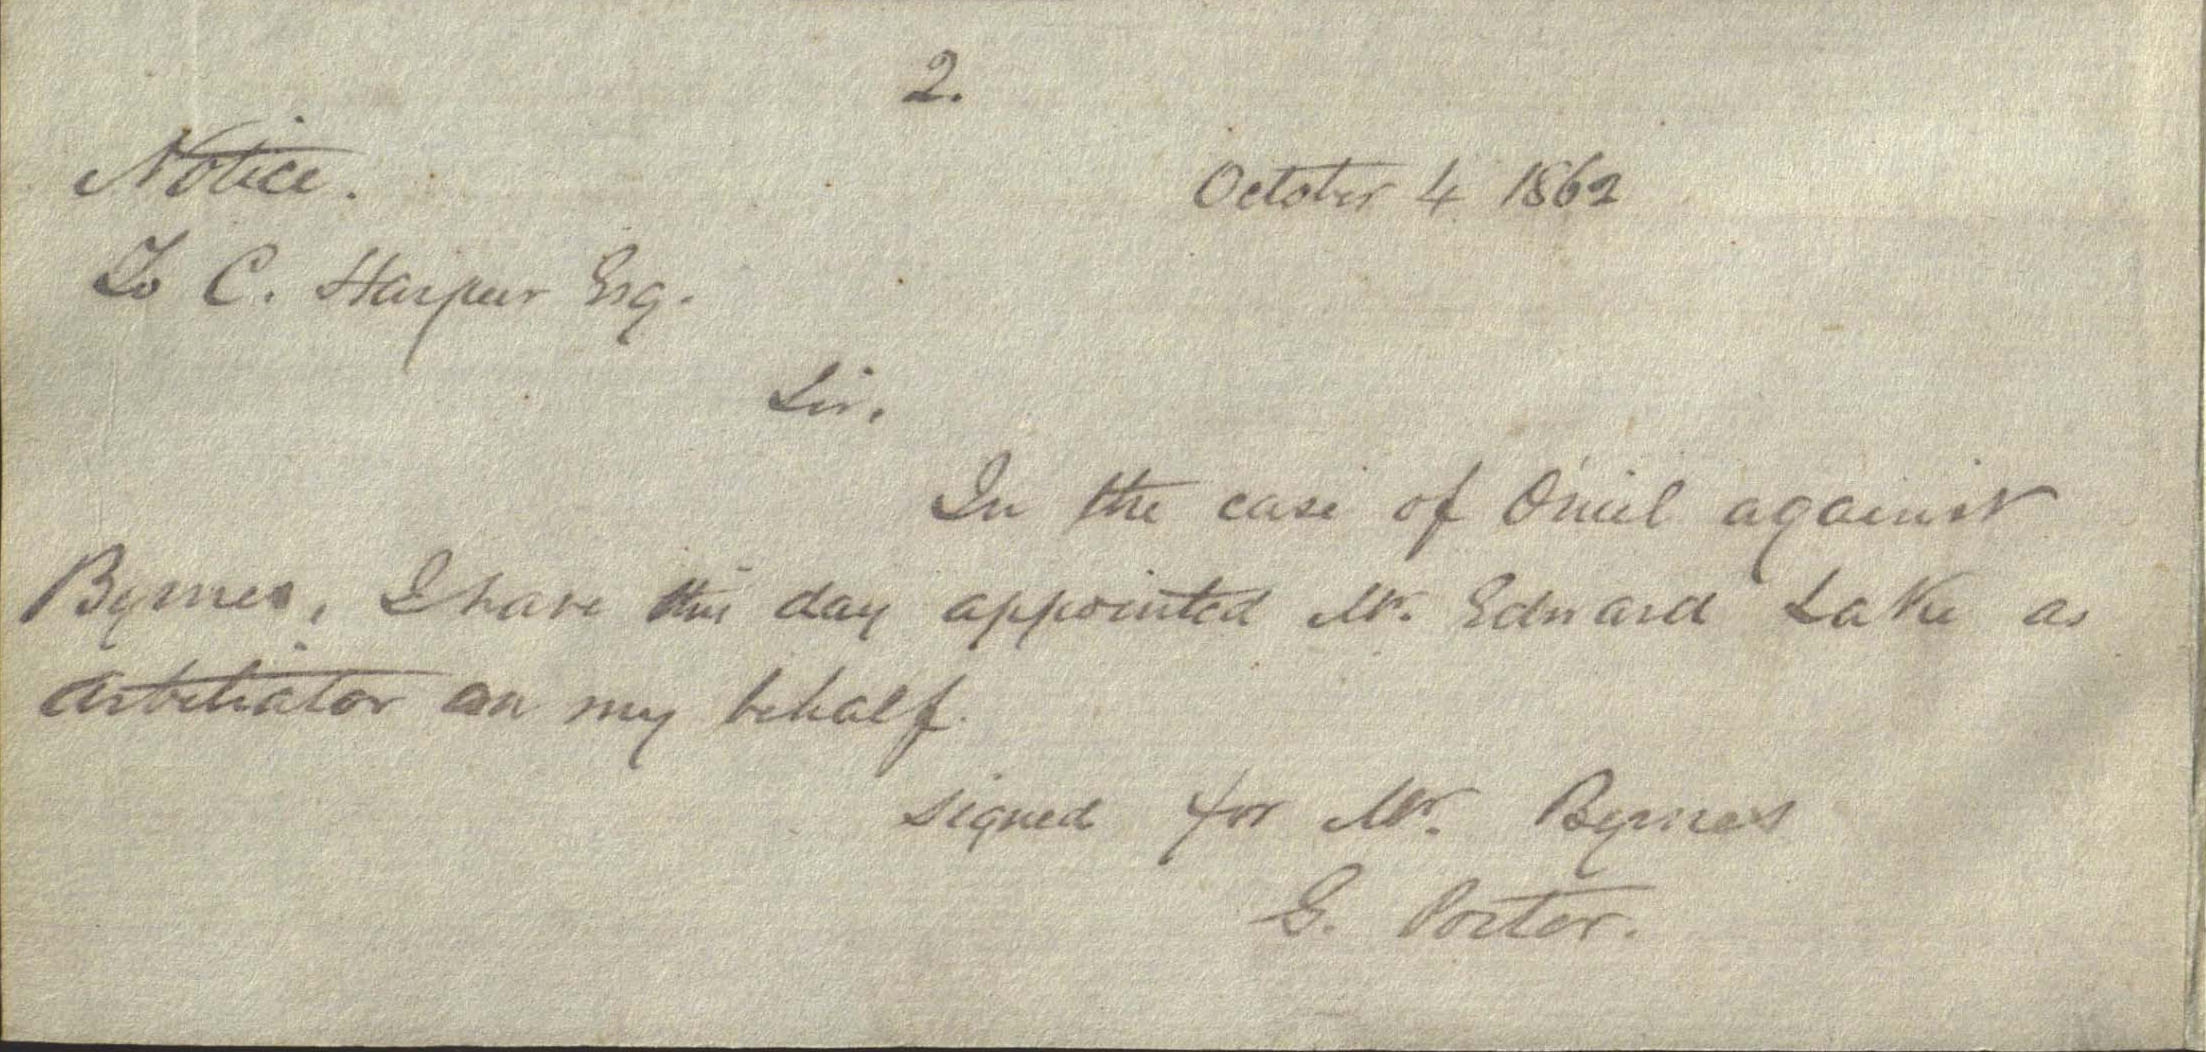 2.
Notice. October 4 1862
To C. Harpur Esq.
Sir.
In the case of O'niel against
Byrnes, I have this day appointed Mr. Edward Lake as
Arbitrator on my behalf.
signed for Mr. Byrnes
G. Porter.